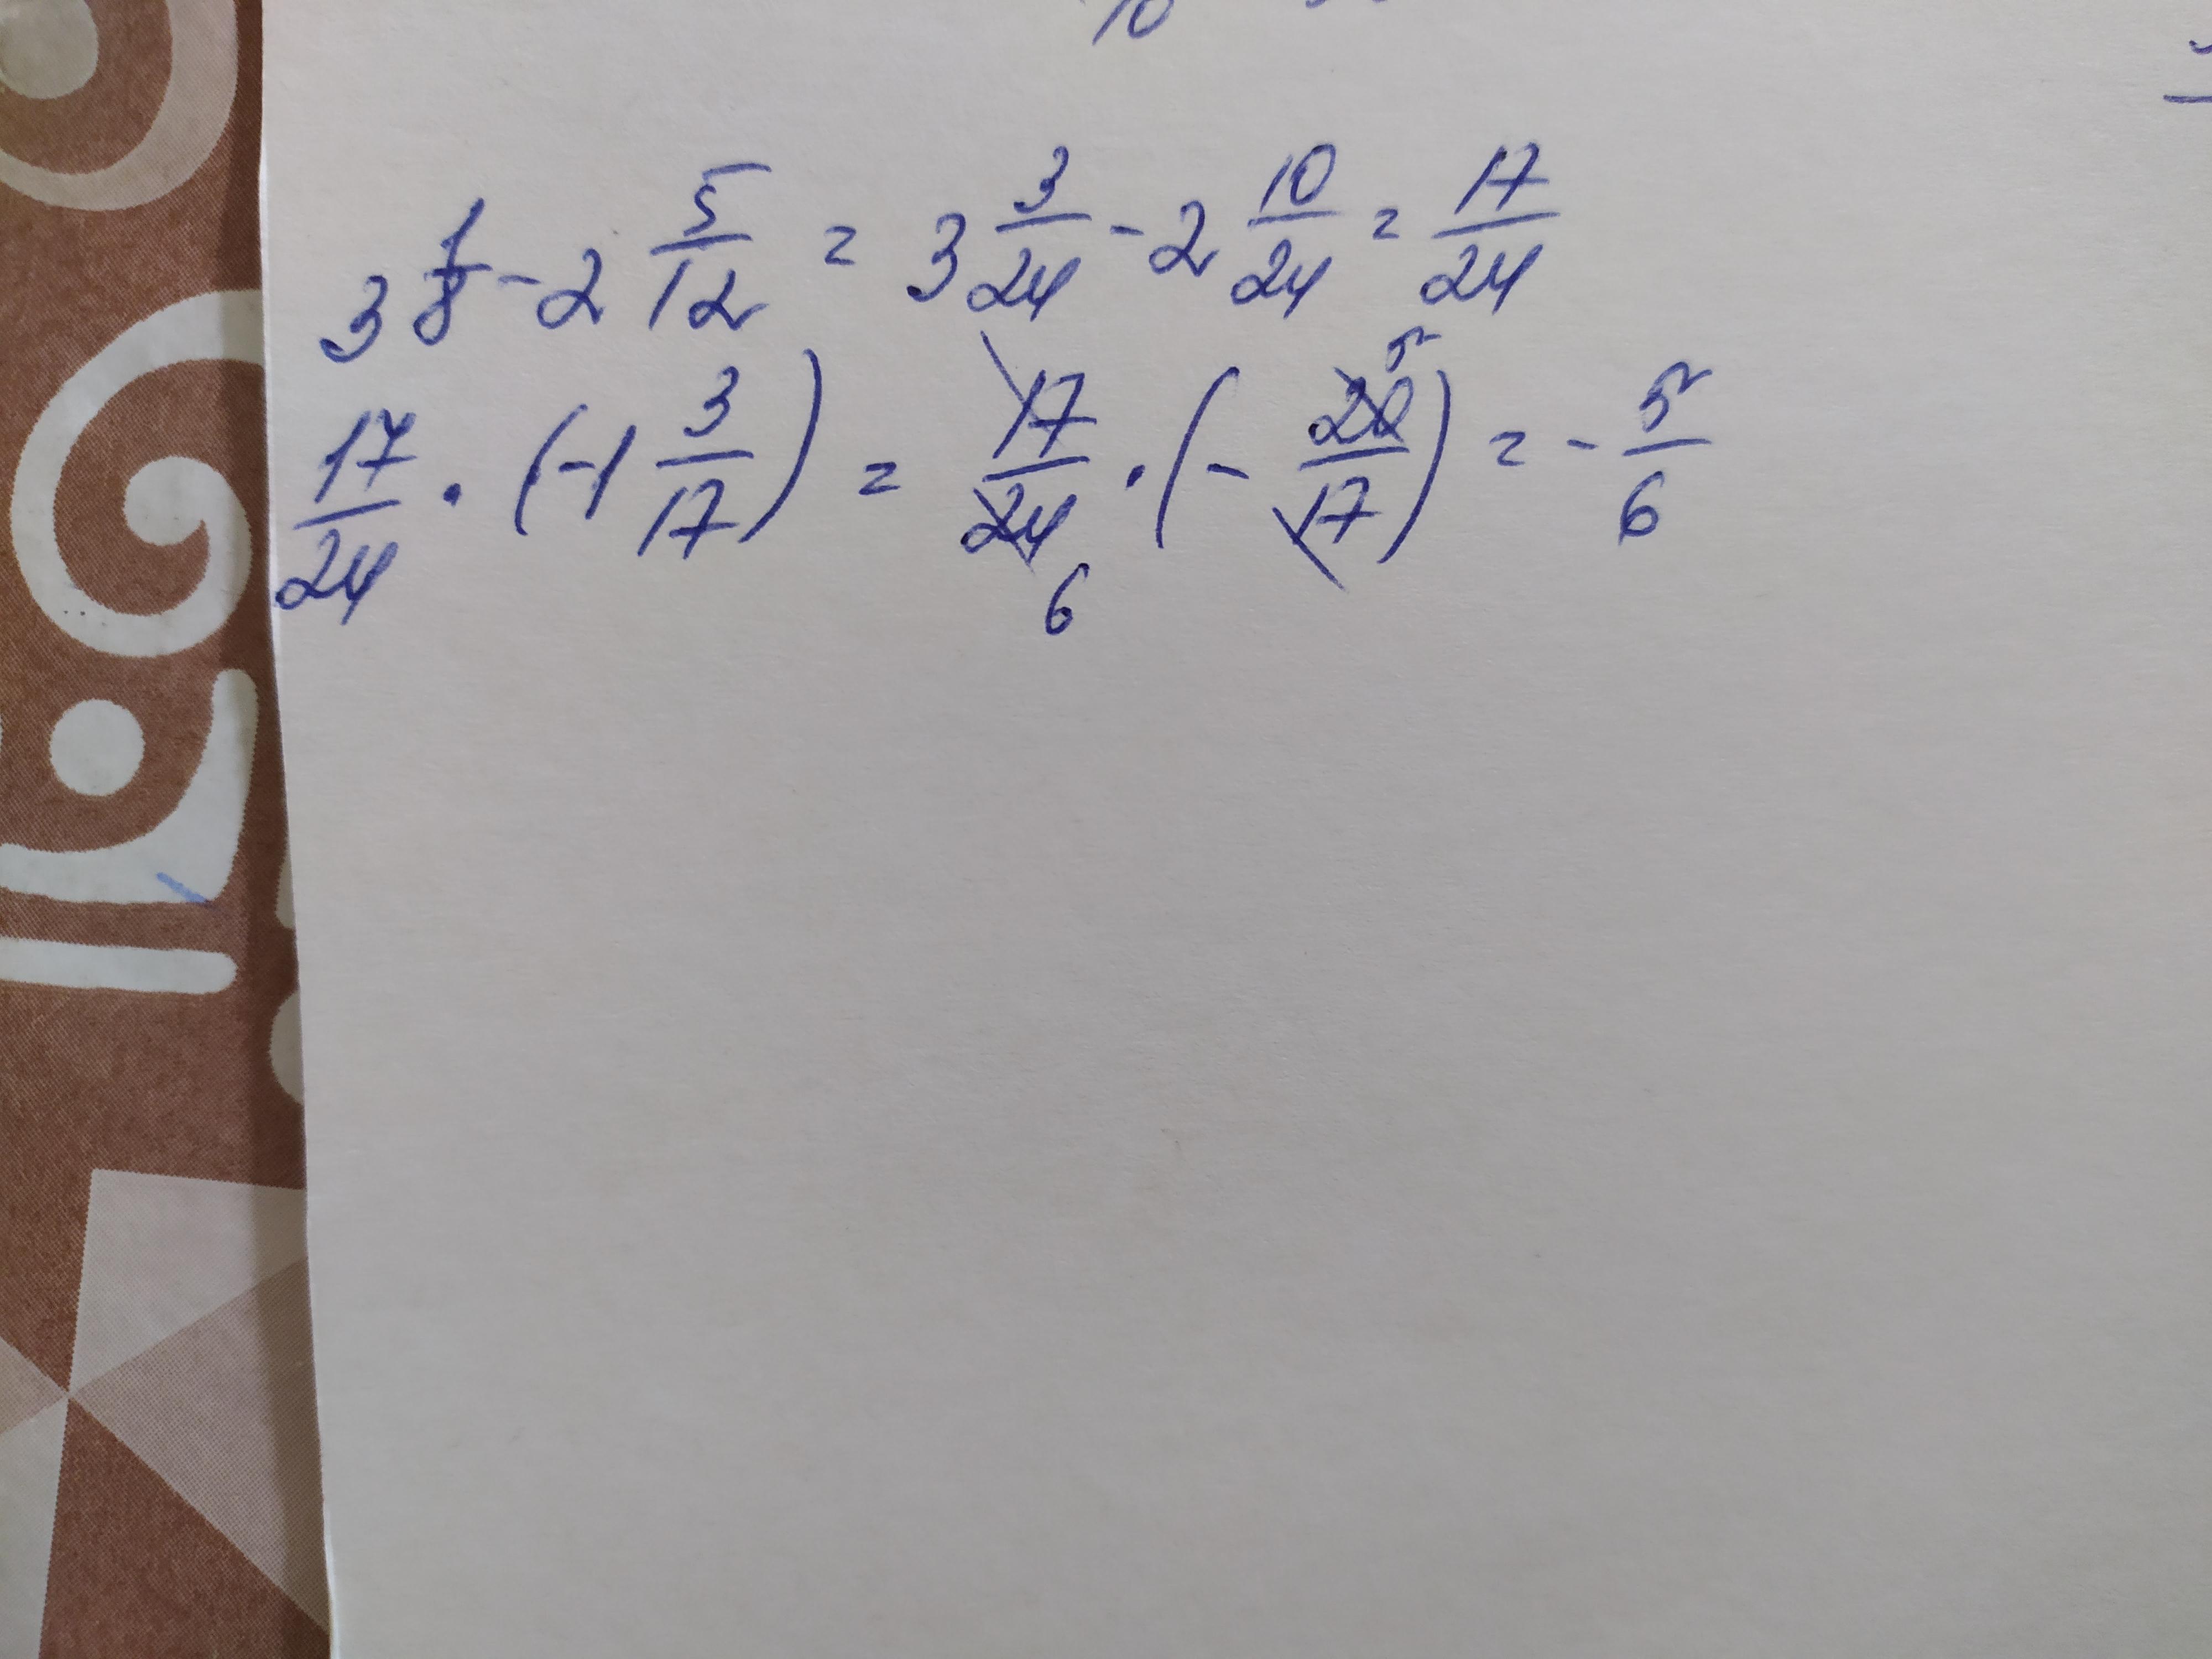 10
3 1/8 - 2 5/12 = 3 3/24 - 2 10/24 = 17/24
17/24 · (-1 3/17) = 17/24 6 · (- 20/17) 5 = - 5/6